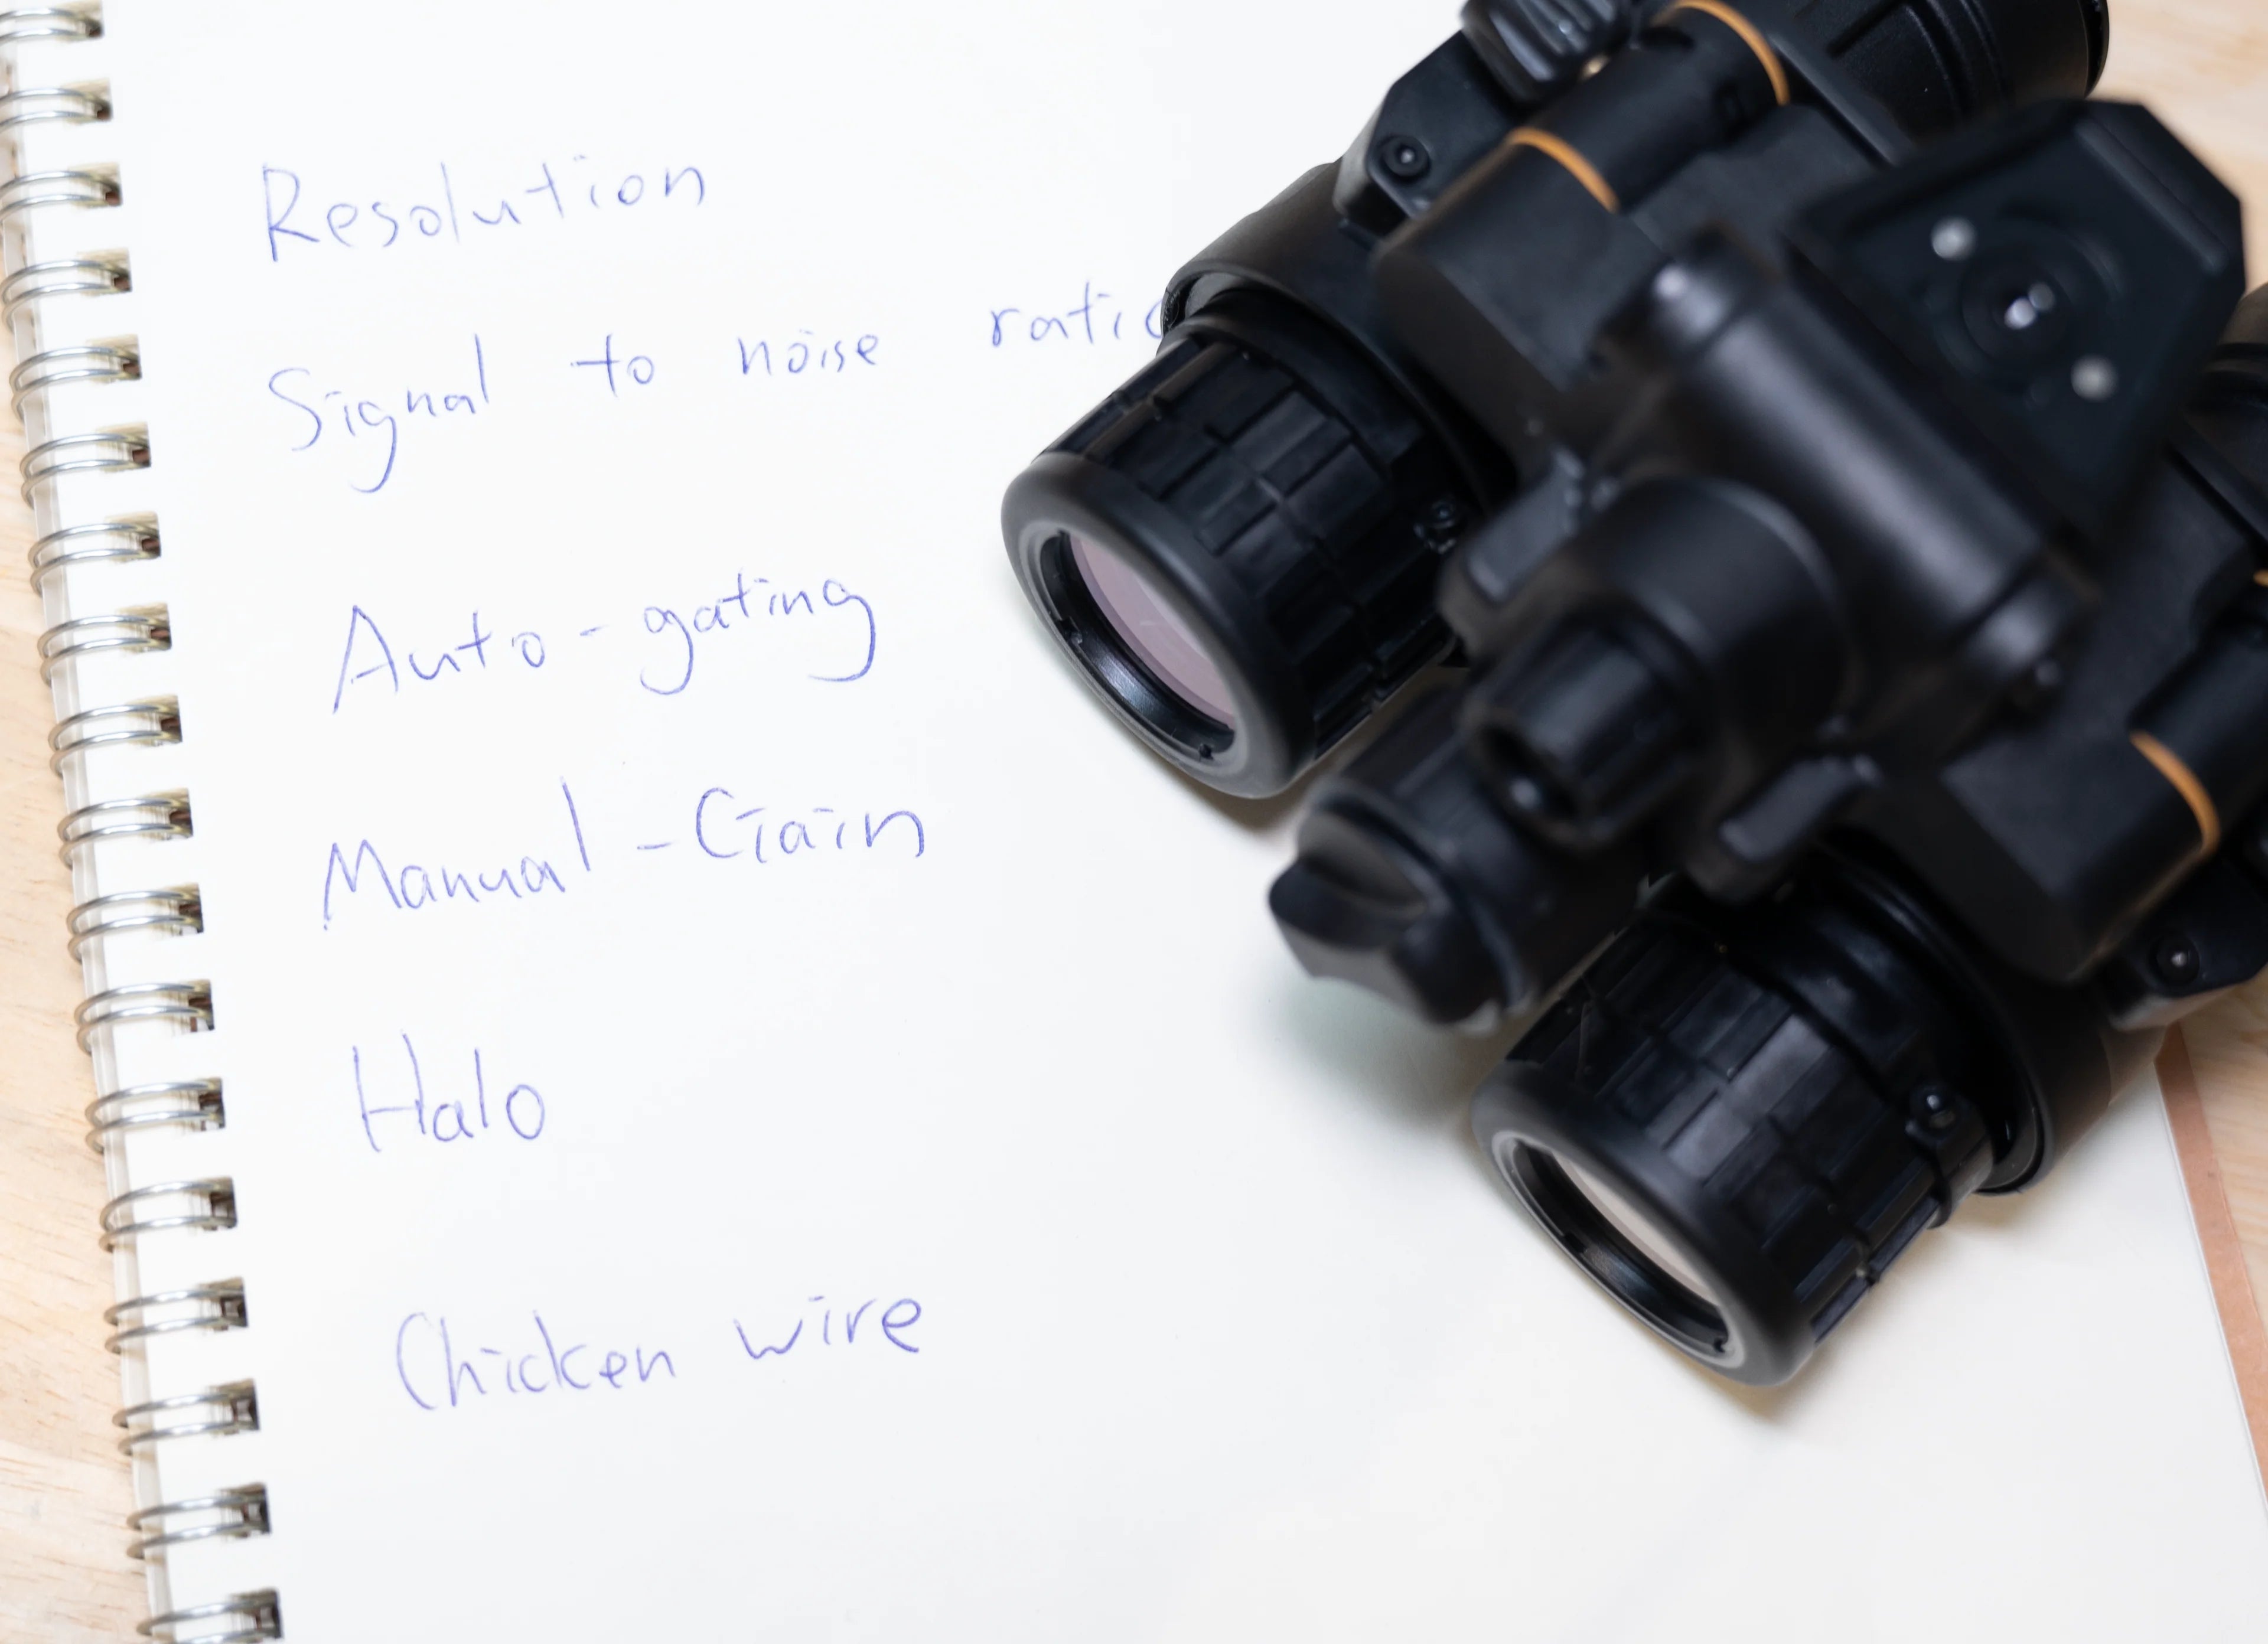 Resolution
Signal to noise ratio
Auto-gating
Manual-Gain
Halo
Chicken wire